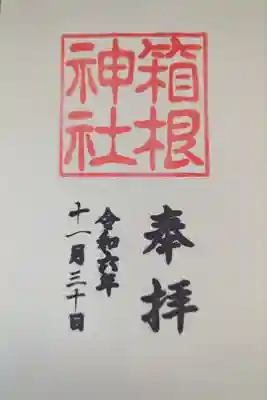 箱根
神社
奉拝
令和六年
十一月三十日